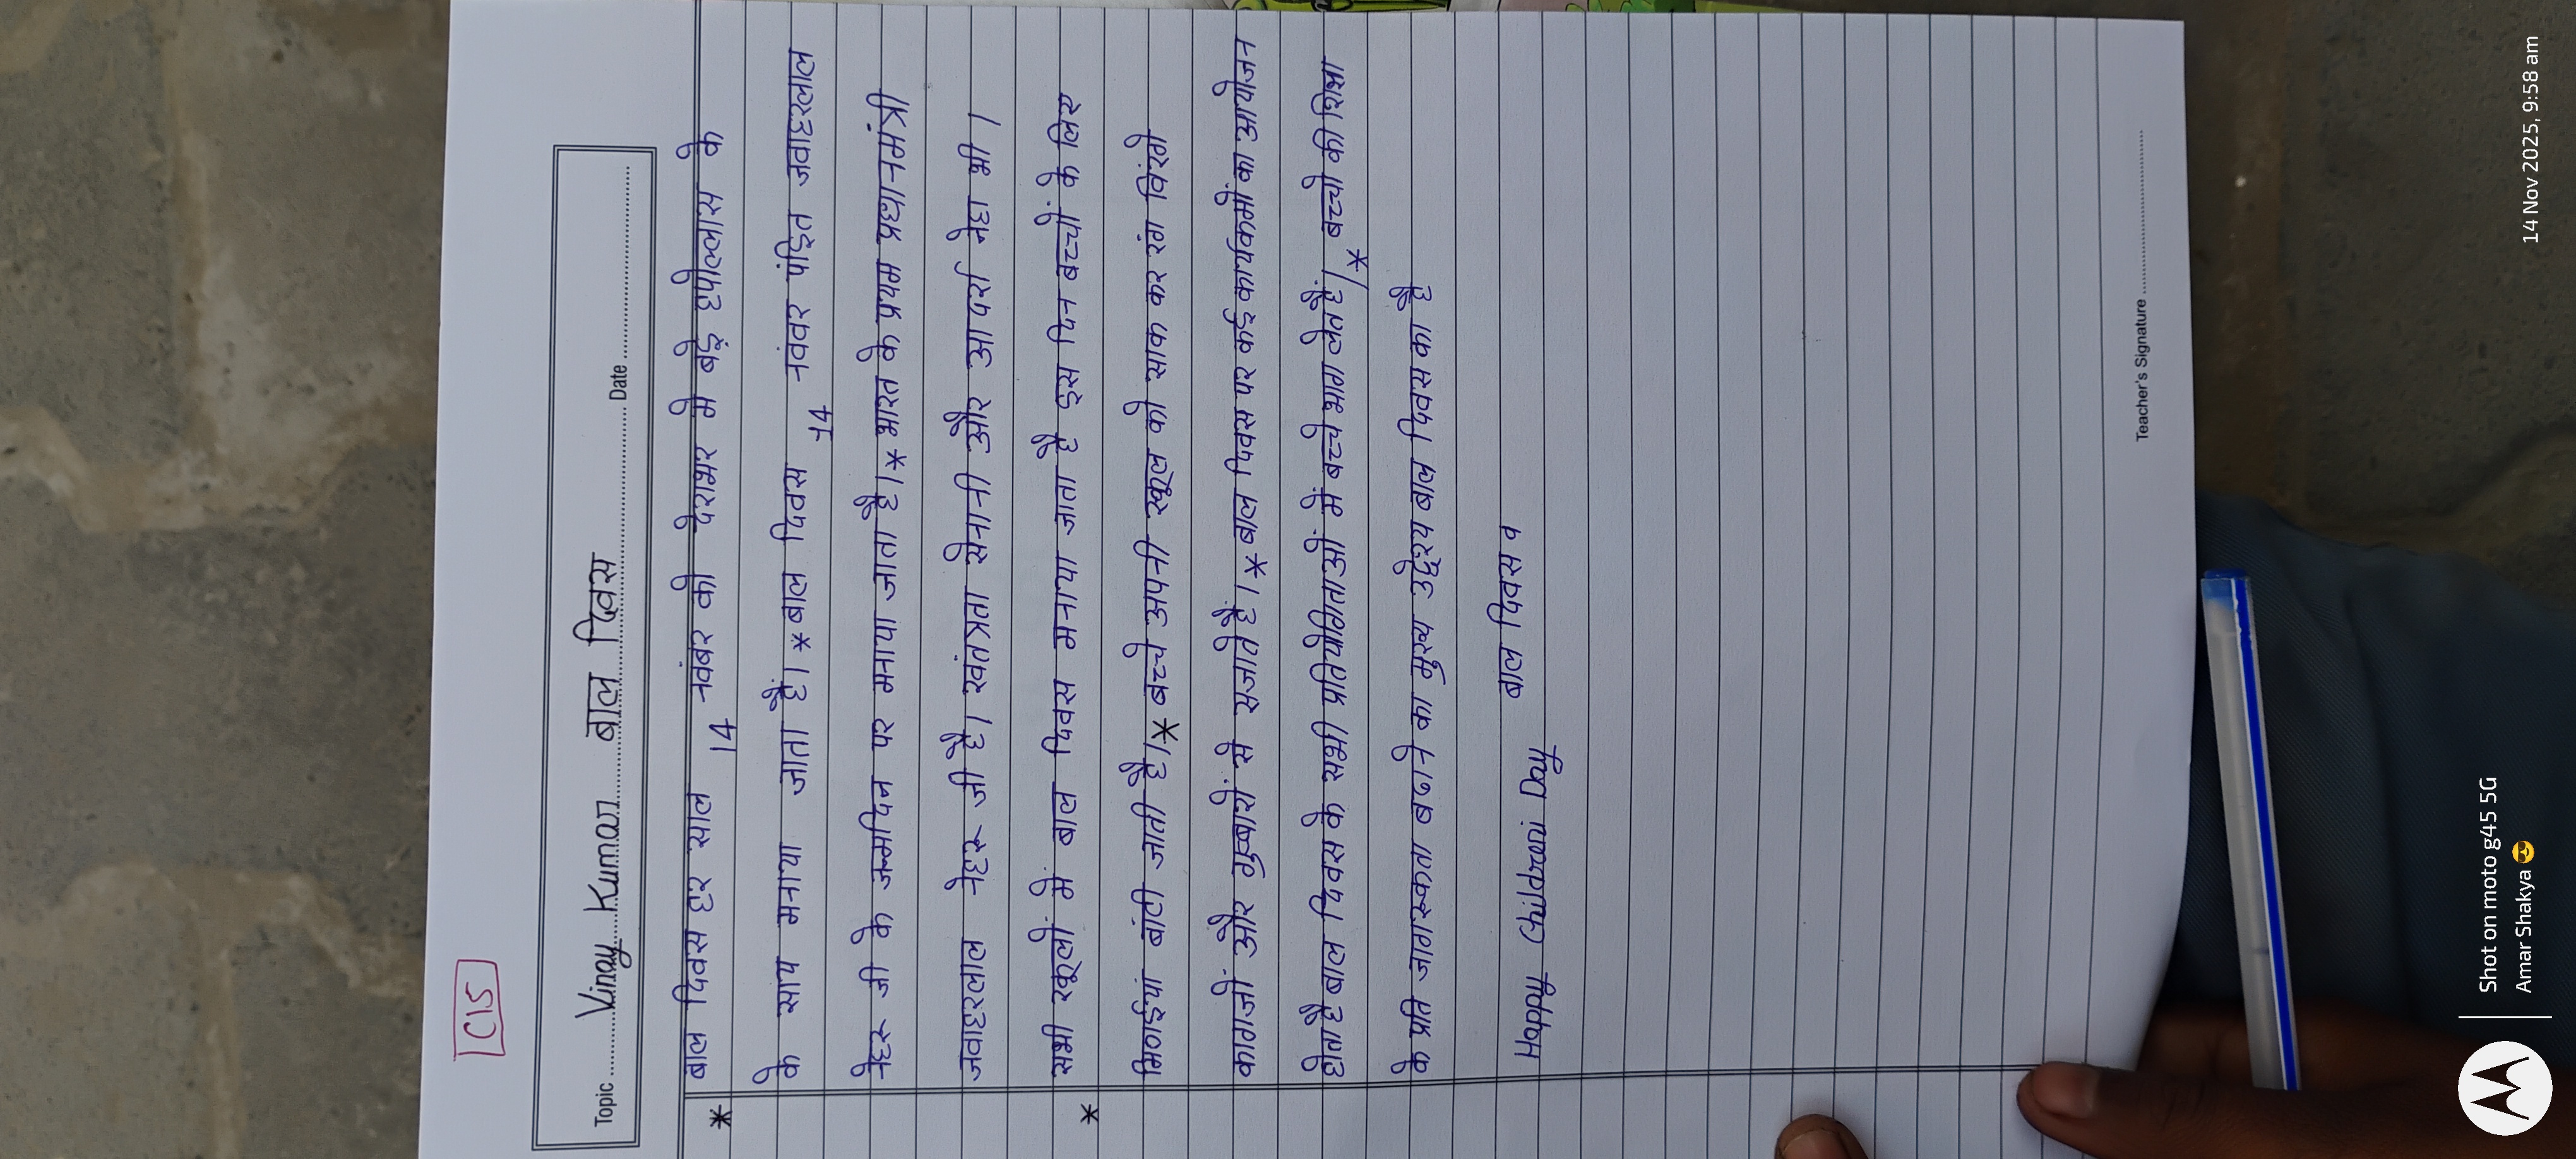 C15
Topic Vinay Kumar बाल दिवस Date
* बाल दिवस हर साल 14 नवंबर को देशभर मे बड़े हर्पोल्लास के
के साथ मनाया जाता हैं। * बाल दिवस 14 नवंबर पंडित जवाहरलाल
नेहरू जी के जन्मदिन पर मनाया जाता है। * भारत के प्रथम प्रधानमंत्री
जवाहरलाल नेहरू जी है। स्वतंत्रता सेनानी और आदर्श नेता भी।
* सभी स्कूलों में बाल दिवस मनाया जाता है इस दिन बच्चों के लिए
मिठाईयां बांटी जाती है। * बच्चे अपनी स्कूल को साफ कर रंग बिरंगे
कागजों और गुब्बारों से सजाते हैं। * बाल दिवस पर कई कार्यक्रमों का आयोजन
होता है बाल दिवस के सभी प्रतियोगिताओं में बच्चे भाग लेते हैं। * बच्चो की शिक्षा
के प्रति जागरूकता बढाने का मुख्य उद्देश्य बाल दिवस का है
Happy Childreni Day बाल दिवस
Teacher's Signature
Shot on moto g45 5G
Amar Shakya 😎
14 Nov 2025, 9:58 am